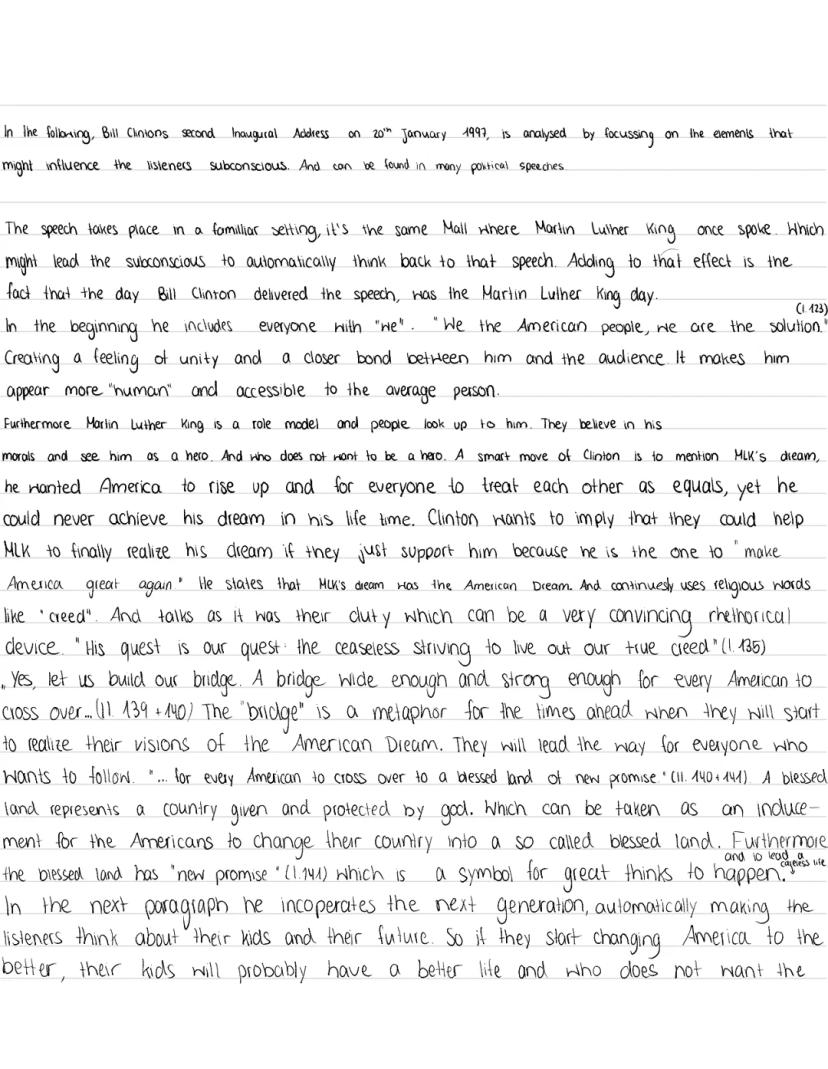 In the following, Bill Clinions second Inaugural Address on 20th January 1997, is analysed by focussing on the elements that
might influence the listeners subconscious. And can be found in many political speeches
The speech takes place in a familliar setting, it's the same Mall where Martin Luther King once spoke. Which
might lead the subconscious to automatically think back to that speech. Adding to that effect is the
fact that the day Bill Clinton delivered the speech, was the Martin Luther King day.
In the beginning he includes everyone with "we". "We the American people, we are the solution." (l. 123)
Creating a feeling of unity and a closer bond between him and the audience. It makes him
appear more "human" and accessible to the average person.
Furthermore Martin Luther King is a role model and people look up to him. They believe in his
morals and see him as a hero. And who does not want to be a hero. A smart move of Clinton is to mention MLK's dream,
he wanted America to rise up and for everyone to treat each other as equals, yet he
could never achieve his dream in his life time. Clinton wants to imply that they could help
MLK to finally realize his dream if they just support him because he is the one to "make
America great again" He states that MLK's dream was the American Dream. And continuesly uses religious words
like "creed". And talks as it was their duty which can be a very convincing rhethorical
device. "His quest is our quest: the ceaseless striving to live out our true creed" (l. 135)
„Yes, let us build our bridge. A bridge wide enough and strong enough for every American to
cross over... (ll. 139 + 140) The "bridge" is a metaphor for the times ahead when they will start
to realize their visions of the American Dream. They will lead the way for everyone who
wants to follow. "... for every American to cross over to a blessed land of new promise" (ll. 140 + 141). A blessed
land represents a country given and protected by god. Which can be taken as an induce-
ment for the Americans to change their country into a so called blessed land. Furthermore
the blessed land has "new promise" (l. 141) which is a symbol for great thinks to happen. and to lead a careless life
In the next paragraph he incoperates the next generation, automatically making the
listeners think about their kids and their future. So if they start changing America to the
better, their kids will probably have a better life and who does not want the